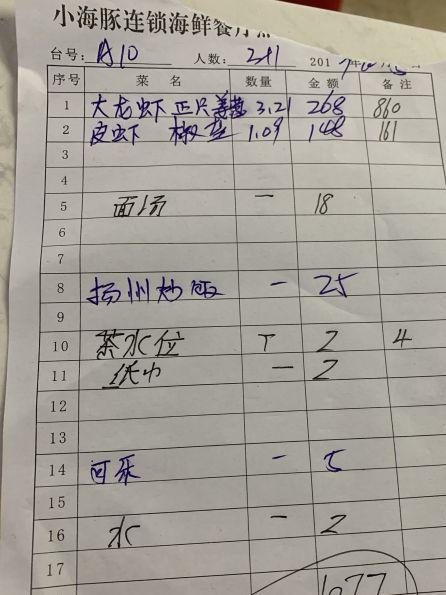 小海豚连锁海鲜餐厅
台号: A10 人数: 2+1 201 年
序号 菜 名 数量 金额 备注
1 大龙虾 正只 3.21 268 860
2 皮虾 椒盐 1.09 148 161
3
4
5 面汤 一 18
6
7
8 扬州炒饭 一 25
9
10 茶水位 T 2 4
11 纸巾 一 2
12
13
14 可乐 一 5
15
16 水 一 2
17 1077